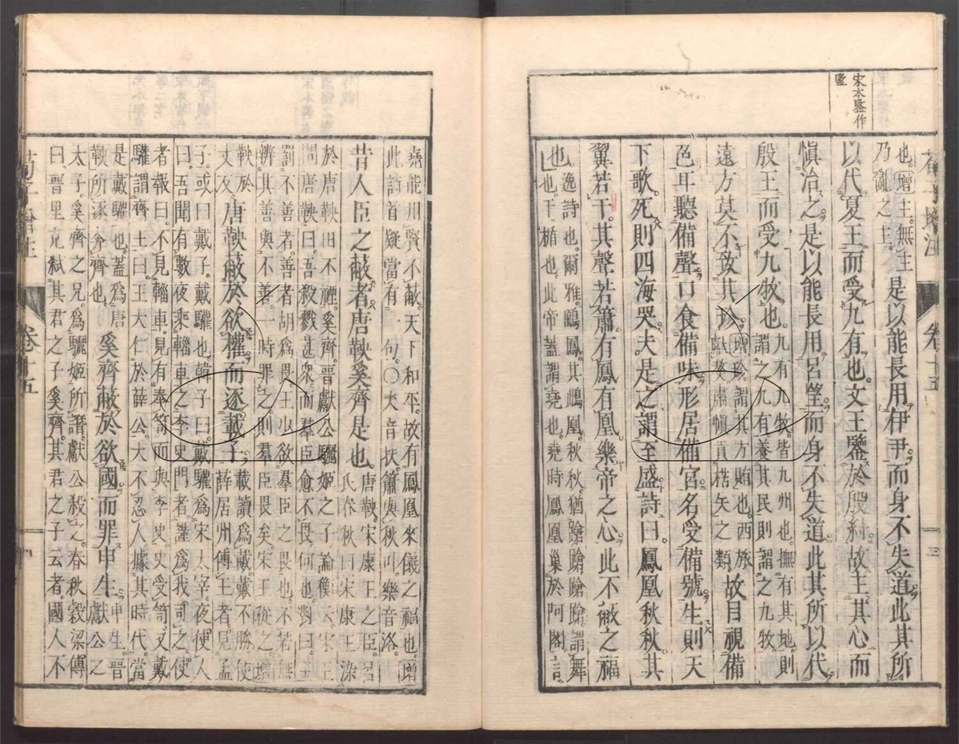 宋本鑒作
監
荀子增注　卷十五　三
也。增。主。無主
乃亂之主。是以能長用伊尹。而身不失道。此其所
以代夏王而受九有也。文王鑒於殷紂。故主其心而
愼治之。是以能長用呂望。而身不失道。此其所以代
殷王而受九牧也。九有九牧皆九州也。撫有其地。則
謂之九有。養其民則謂之九牧。
遠方莫不致其珍。增。珍謂其方賄也。西旅
獒肅愼貢楛矢之類。故目視備
色。耳聽備聲。口食備味。形居備宮。名受備號。生則天
下歌。死則四海哭。夫是之謂至盛。詩曰。鳳凰秋秋。其
翼若干。其聲若簫。有鳳有凰。樂帝之心。此不蔽之福
也。逸詩也。爾雅鶠鳳。其雌凰。秋秋猶蹌蹌。蹌蹌謂舞
也。干。楯也。此帝蓋謂堯也。堯時鳳凰巢於阿閣。言
堯能用賢不蔽。天下和平。故有鳳凰來儀之福也。增
此詁首疑當有一句。〇犬音扶。簫與秋叶。樂音洛。
昔人臣之蔽者。唐鞅奚齊是也。唐鞅。宋康王之臣。呂
氏春秋曰。宋康王染
於唐鞅田不禋。奚齊。晉獻公驪姬之子。論衡云。宋王
問唐鞅曰。吾殺戮甚衆。而羣臣愈不畏。何也。對曰。王
罰不善者。善者胡爲畏。王必欲羣臣之畏也。不若無
辨其善與不善。一時罪之。則羣臣畏矣。宋王從之。增
唐鞅蔽於欲權而逐載子。載讀爲戴。戴不勝使
薛居州傅王者。見孟
子。或曰戴子。戴驩也。韓子曰。戴驩爲宋太宰。夜使人
曰。吾聞有數夜乘轀車之李史門者。謹爲我司之。使
者報曰。不見轀車。見有奉笥而與李史。史受笥。又戴
驩謂齊王曰。王大仁於薛公。大不忍人。據其時代。當
是戴驩也。蓋爲唐
鞅所逐奔齊也。奚齊蔽於欲國而罪申生。申生晉
獻公之
太子。奚齊之兄。爲驪姬所譖。獻公殺之。春秋穀梁傳
曰。晉里克弒其君之子奚齊。其君之子云者。國人不
荀子增注　卷十五　四